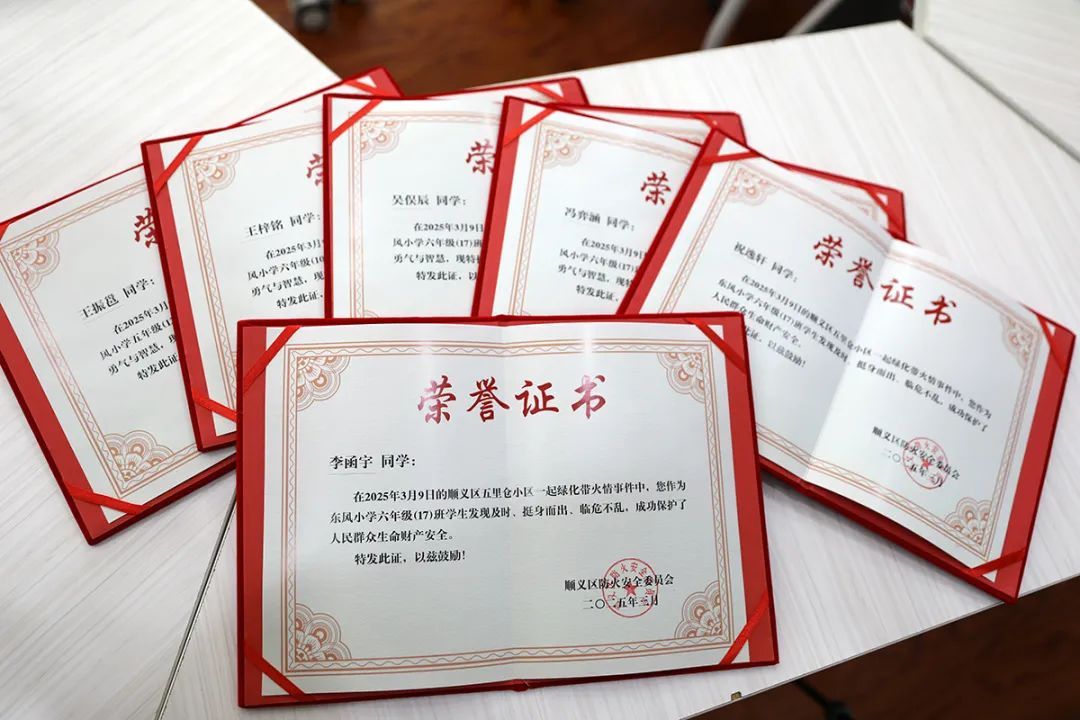 荣
王振邕 同学：
在2025年3月
风小学五年级(1
勇气与智慧，现
特发此证，
荣
王梓铭 同学：
在2025年3月9
风小学六年级(10
勇气与智慧，现
特发此证，
荣
吴俣辰 同学：
在2025年3月9日
风小学六年级(17)班
勇气与智慧，现特
特发此证，以
荣
冯弈涵 同学：
在2025年3月9日
风小学六年级(17)
勇气与智慧，现
特发此证，以
荣誉证书
祝逸轩 同学：
在2025年3月9日的顺义区五里仓小区一起绿化带火情事件中，您作为
东风小学六年级(17)班学生发现及时、挺身而出、临危不乱，成功保护了
人民群众生命财产安全。
此证，以兹鼓励！
顺义区防火安全委员会
二〇二五年三月
荣誉证书
李函宇 同学：
在2025年3月9日的顺义区五里仓小区一起绿化带火情事件中，您作为
东风小学六年级(17)班学生发现及时、挺身而出、临危不乱，成功保护了
人民群众生命财产安全。
特发此证，以兹鼓励！
顺义区防火安全委员会
二〇二五年三月